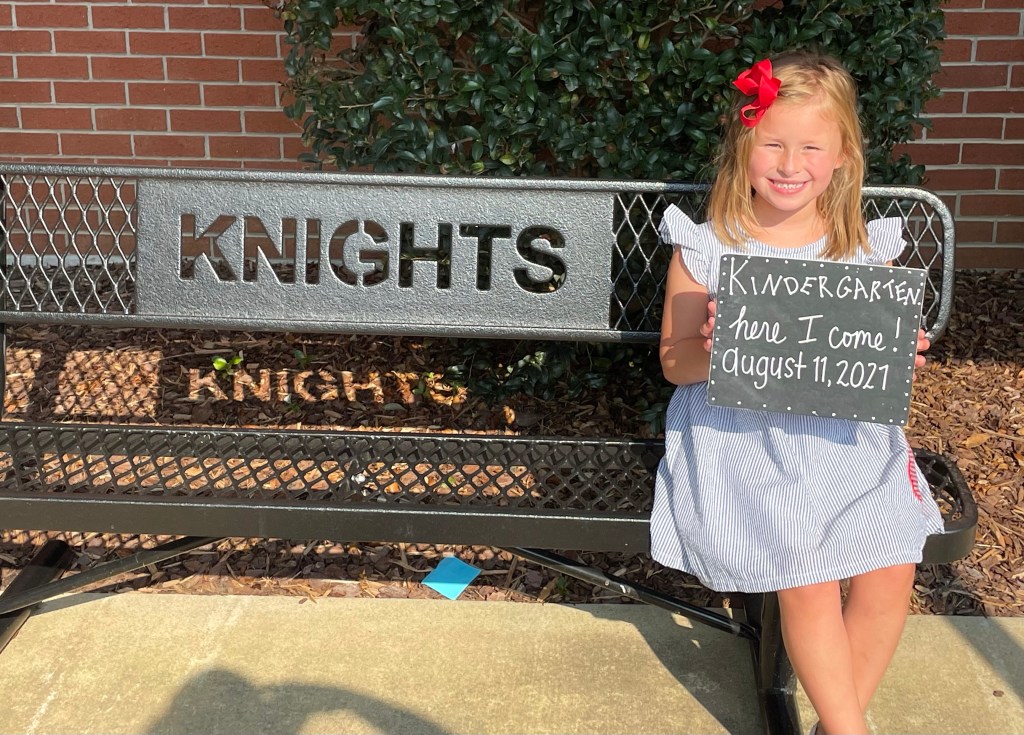 KNIGHTS
KINDERGARTEN
here I come!
august 11, 2021
KNIGHTS